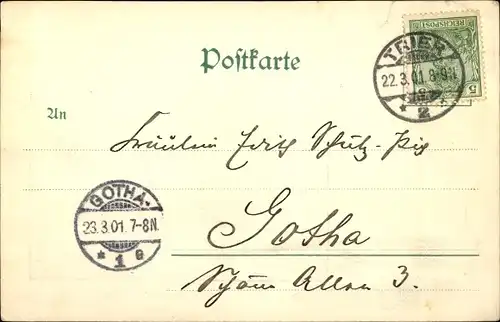 Postkarte
REICHSPOST
5
TRIER
22.3.01. 8-9N.
* 2
An
Fräulein Edith Schutz-
Gotha
GOTHA-
23.3.01. 7-8N.
* 1 e
Schöne Allee 3.